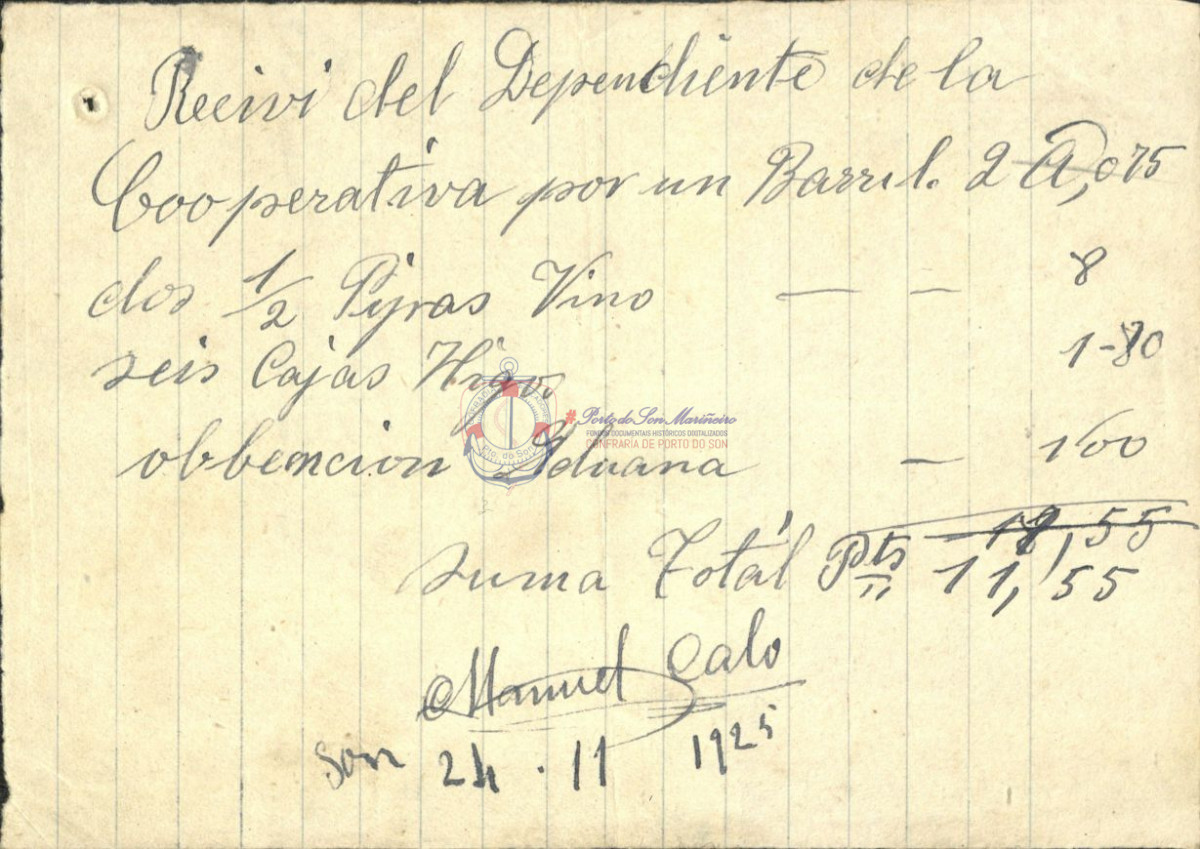 Recivi del Dependiente de la
Cooperativa por un Barril. 2 A,075
dos 1/2 Pipas Vino — — 8
seis Cajas Higos 1-80
obbencion Aduana — 1'00
suma Totál Pts 11,55
Manuel Calo
Son 24 . 11 1925
#Porto do Son Mariñeiro
FONDOS DOCUMENTAIS HISTÓRICOS DIGITALIZADOS
CONFRARÍA DE PORTO DO SON
Pto. do Son